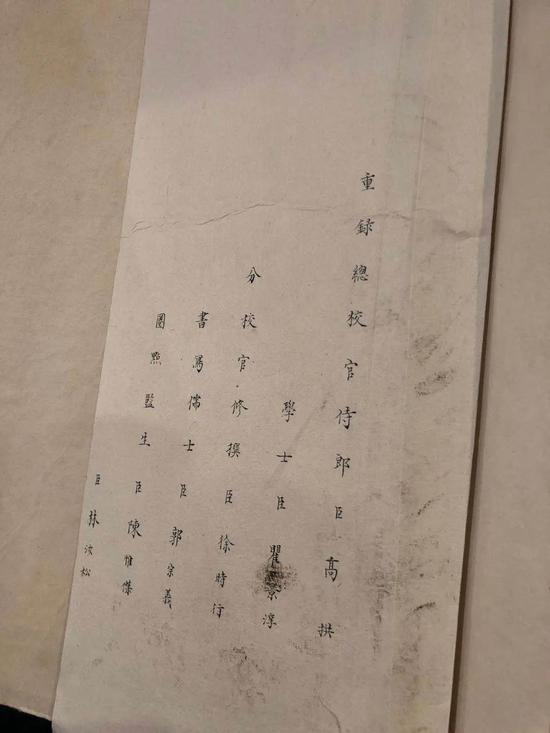 重錄總校官侍郎臣高拱
學士臣瞿景淳
分校官修撰臣徐時行
書寫儒士臣郭宗義
圈點監生臣陳惟傑
臣林汝松